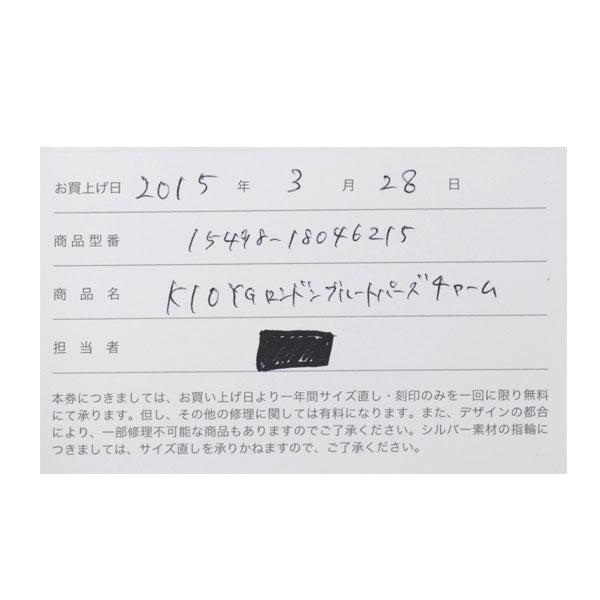 お買上げ日 2015 年 3 月 28 日
商品型番 15498-18046215
商品名 K10YGロンドンブルートパーズチャーム
担当者
本券につきましては、お買い上げ日より一年間サイズ直し・刻印のみを一回に限り無料
にて承ります。但し、その他の修理に関しては有料になります。また、デザインの都合
により、一部修理不可能な商品もありますのでご了承ください。シルバー素材の指輪に
つきましては、サイズ直しを承りかねますので、ご了承ください。